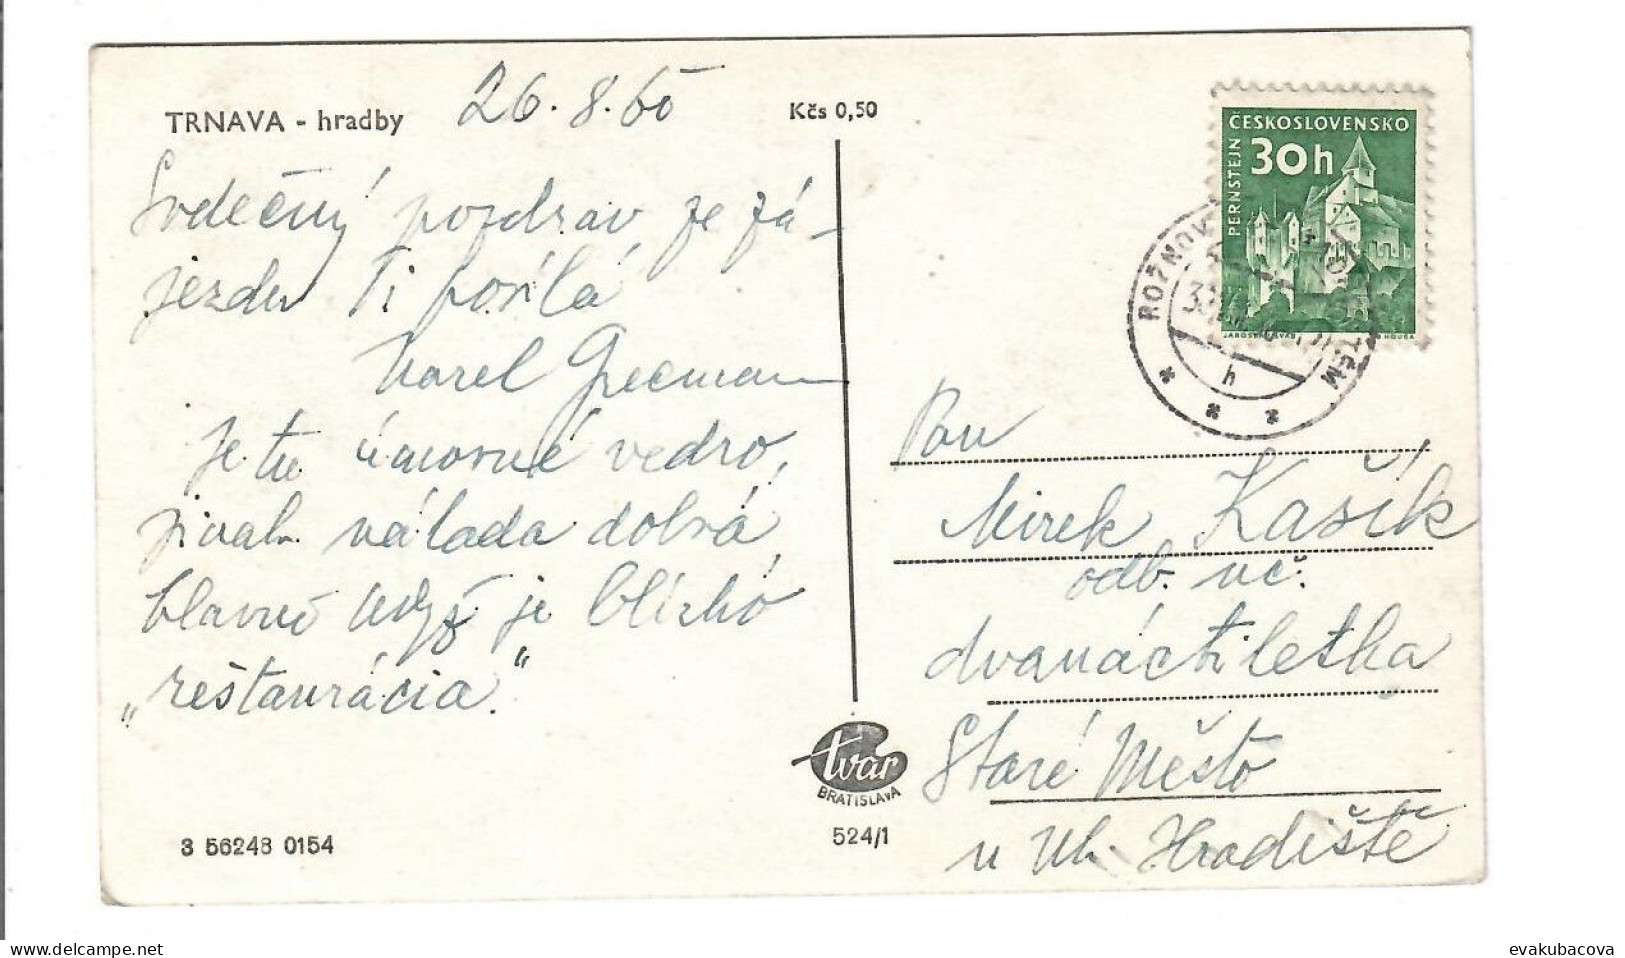 TRNAVA - hradby
26.8.60
Kčs 0,50
Srdečný pozdrav ze zá-
jezdu Ti posílá
Karel
Je tu úmorné vedro,
jinak nálada dobrá,
hlavně když je blízko
„reštaurácia."
3 56248 0154
tvar
BRATISLAVA
524/1
ČESKOSLOVENSKO
30h
PERNŠTEJN
ROŽNOV
h
Pan
Mirek Kašík
odb. uč.
dvanáctiletka
Staré Město
u Uh. Hradiště
evakubacova